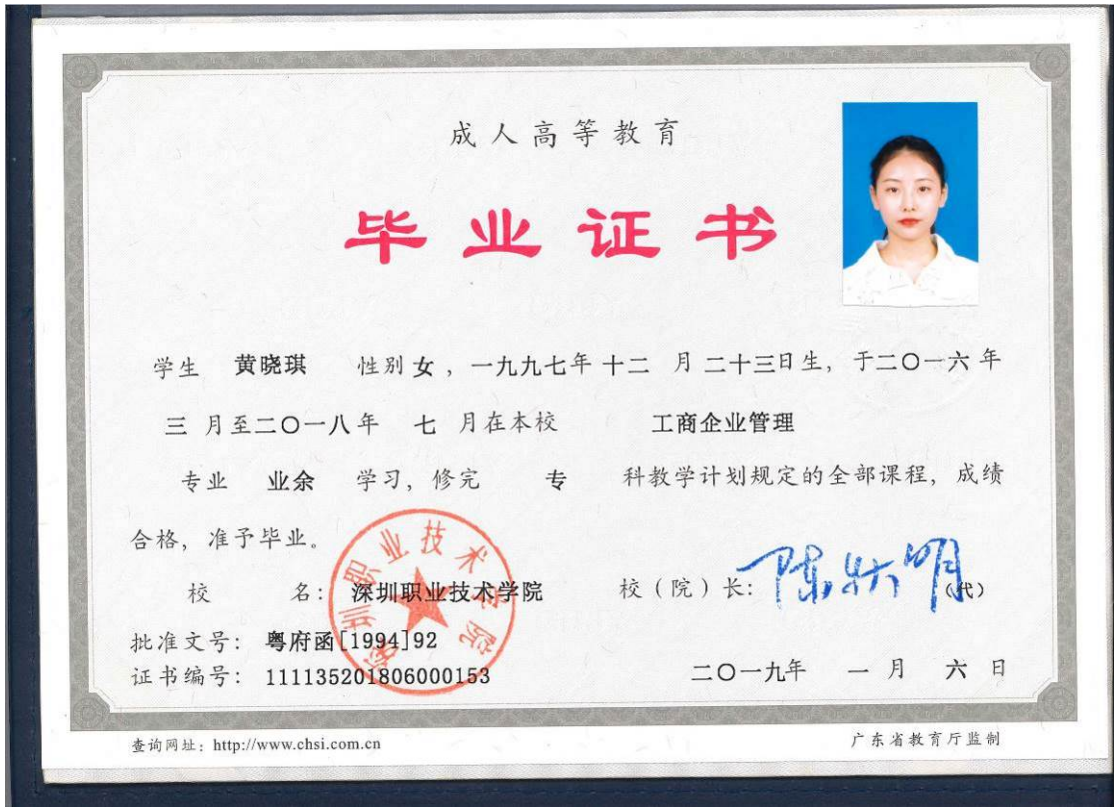 成人高等教育
毕业证书
学生 黄晓琪 性别 女，一九九七年 十二 月 二十三日生，于二〇一六年
三 月至二〇一八年 七 月在本校 工商企业管理
专业 业余 学习，修完 专 科教学计划规定的全部课程，成绩
合格，准予毕业。
校 名： 深圳职业技术学院 校（院）长： (代)
深圳职业技术学院
批准文号： 粤府函[1994]92
证书编号： 111135201806000153 二〇一九年 一 月 六 日
查询网址：http://www.chsi.com.cn 广东省教育厅监制